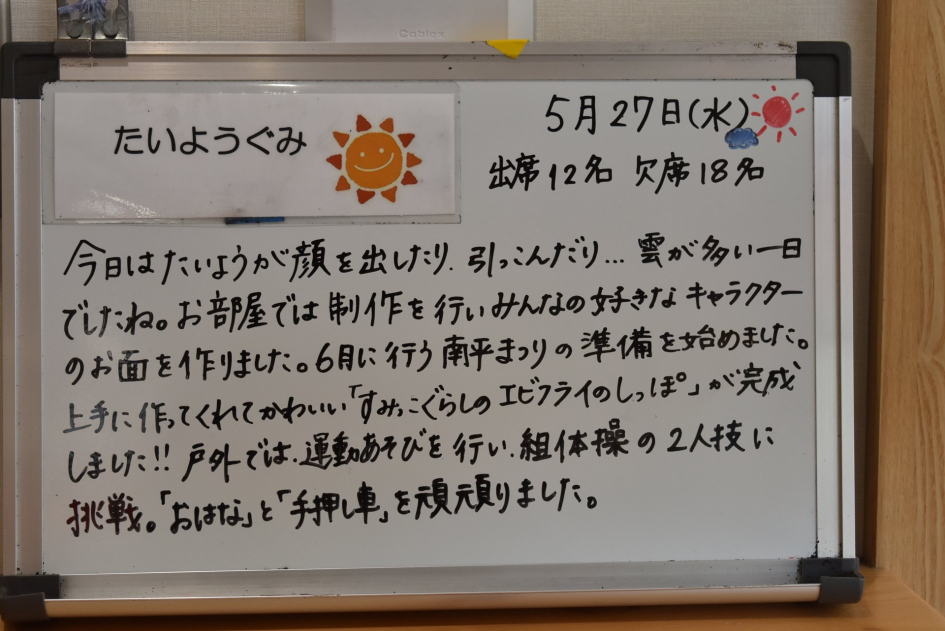 Cablex
たいようぐみ
5月27日(水)
出席12名 欠席18名
今日はたいようが顔を出したり、引っこんだり…雲が多い一日
でしたね。お部屋では制作を行いみんなの好きなキャラクター
のお面を作りました。6月に行う南平まつりの準備を始めました。
上手に作ってくれてかわいい「すみっこぐらしのエビフライのしっぽ」が完成
しました!! 戸外では、運動あそびを行い、組体操の2人技に
挑戦。「おはな」と「手押し車」を頑頑りました。